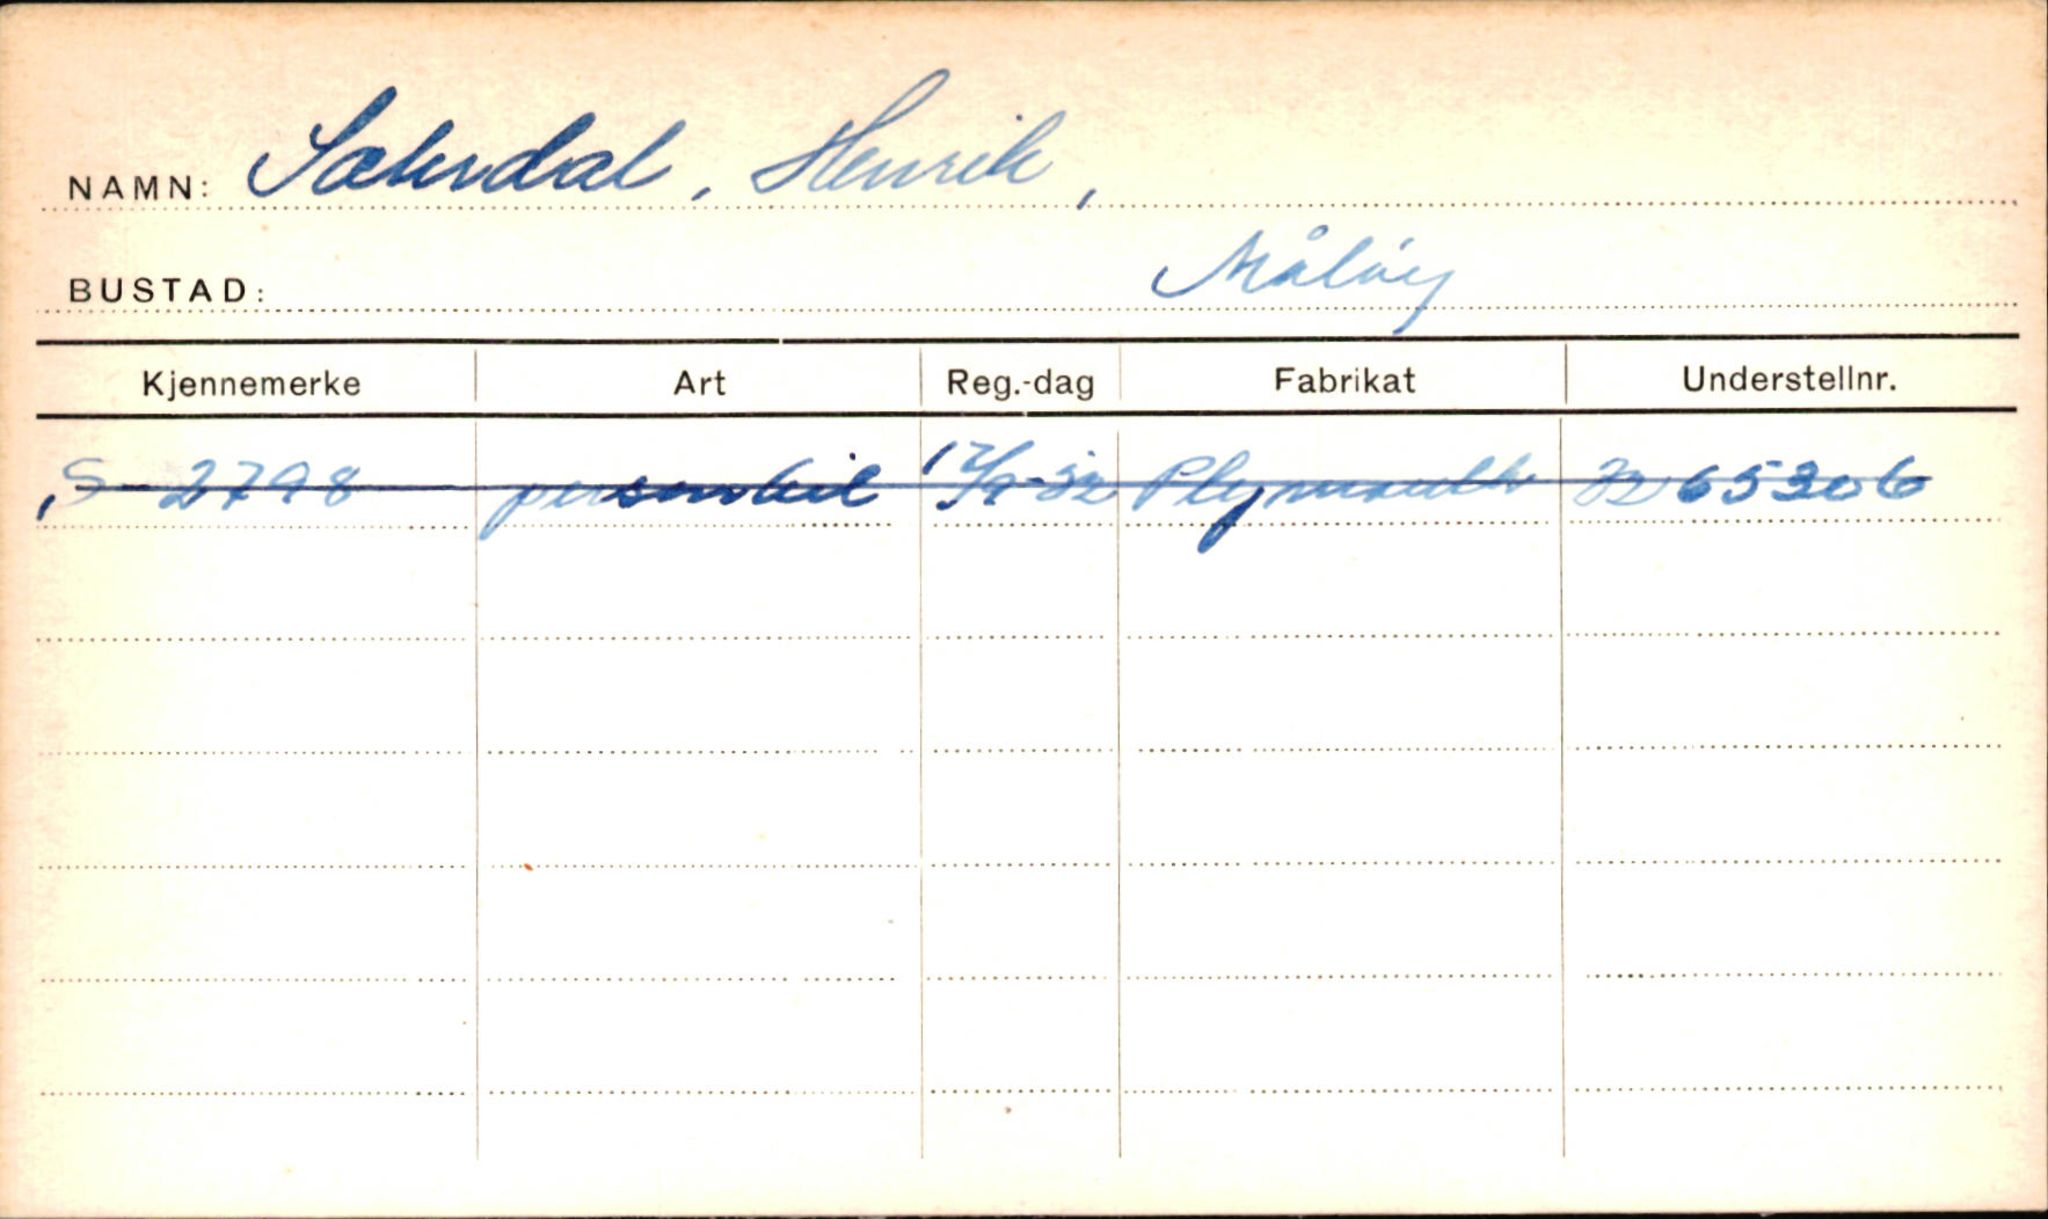 NAMN: Sætvedal, Henrik,
BUSTAD: Måløy
Kjennemerke Art Reg.-dag Fabrikat Understellnr.
S-2798 personbil Plymouth 65306